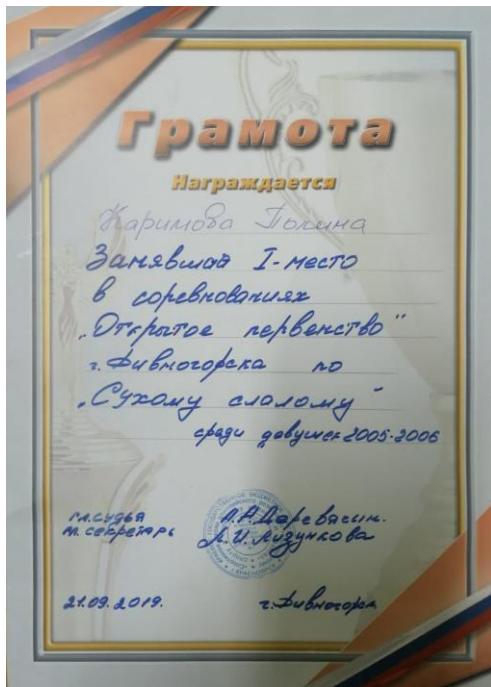 Грамота
Награждается
Каримова Полина
Занявшая I-место
в соревнованиях
„Открытое первенство"
г. Дивногорска по
„Сухому слалому"
среди девушек 2005-2006
гл. судья
гл. секретарь Л.И. Лизункова
21.09.2019. г. Дивногорск